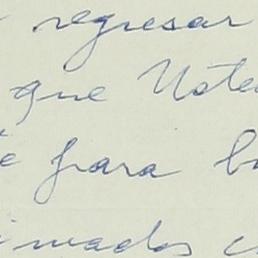 regresar
que Note
é para b
imados c